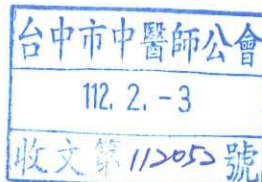 台中市中醫師公會
112. 2. -3
收文第112052號